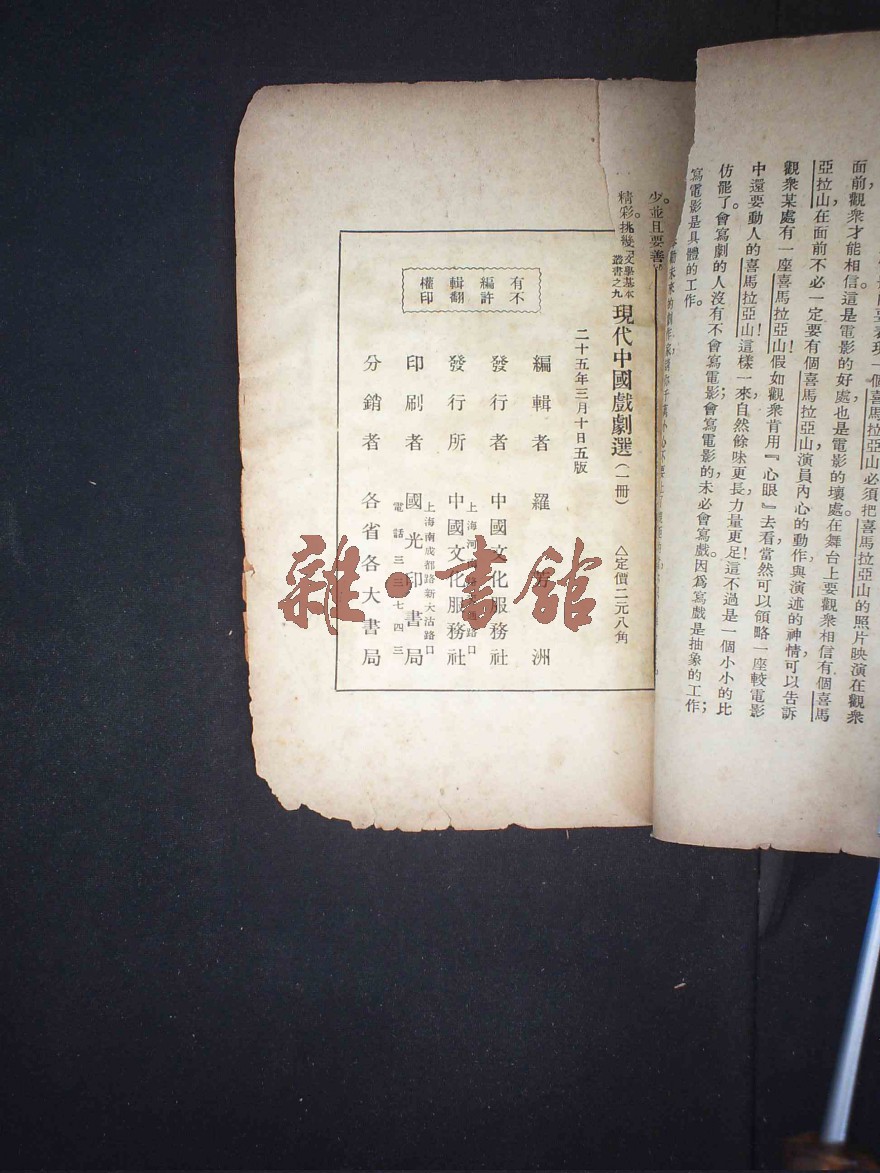 面前觀衆才能相信。這是電影的好處也是電影的壞處。在舞台上要觀衆相信有個喜馬
亞拉山在面前不必一定要有個喜馬拉亞山，演員內心的動作與演述的神情可以告訴
觀衆某處有一座喜馬拉亞山！假如觀衆肯用『心眼』去看，當然可以領略一座較電影
中還要動人的喜馬拉亞山！這樣一來自然餘味更長，力量更足這不過是一個小小的比
仿罷了。會寫劇的人沒有不會寫電影；會寫電影的未必會寫戲因爲寫戲是抽象的工作；
寫電影是具體的工作。
少。並且要善
精彩。挑幾
文學基本
叢書之九
現代中國戲劇選（一冊）
△定價二元八角
二十五年三月十日五版
有不
編許
輯翻
權印
編輯者　羅　洲
發行者　中國文化服務社
上海河　路口
發行所　中國文化服務社
上海南成都路新大沽路口
印刷者　國光印書局
電話三三七四三
分銷者　各省各大書局
雜·書館